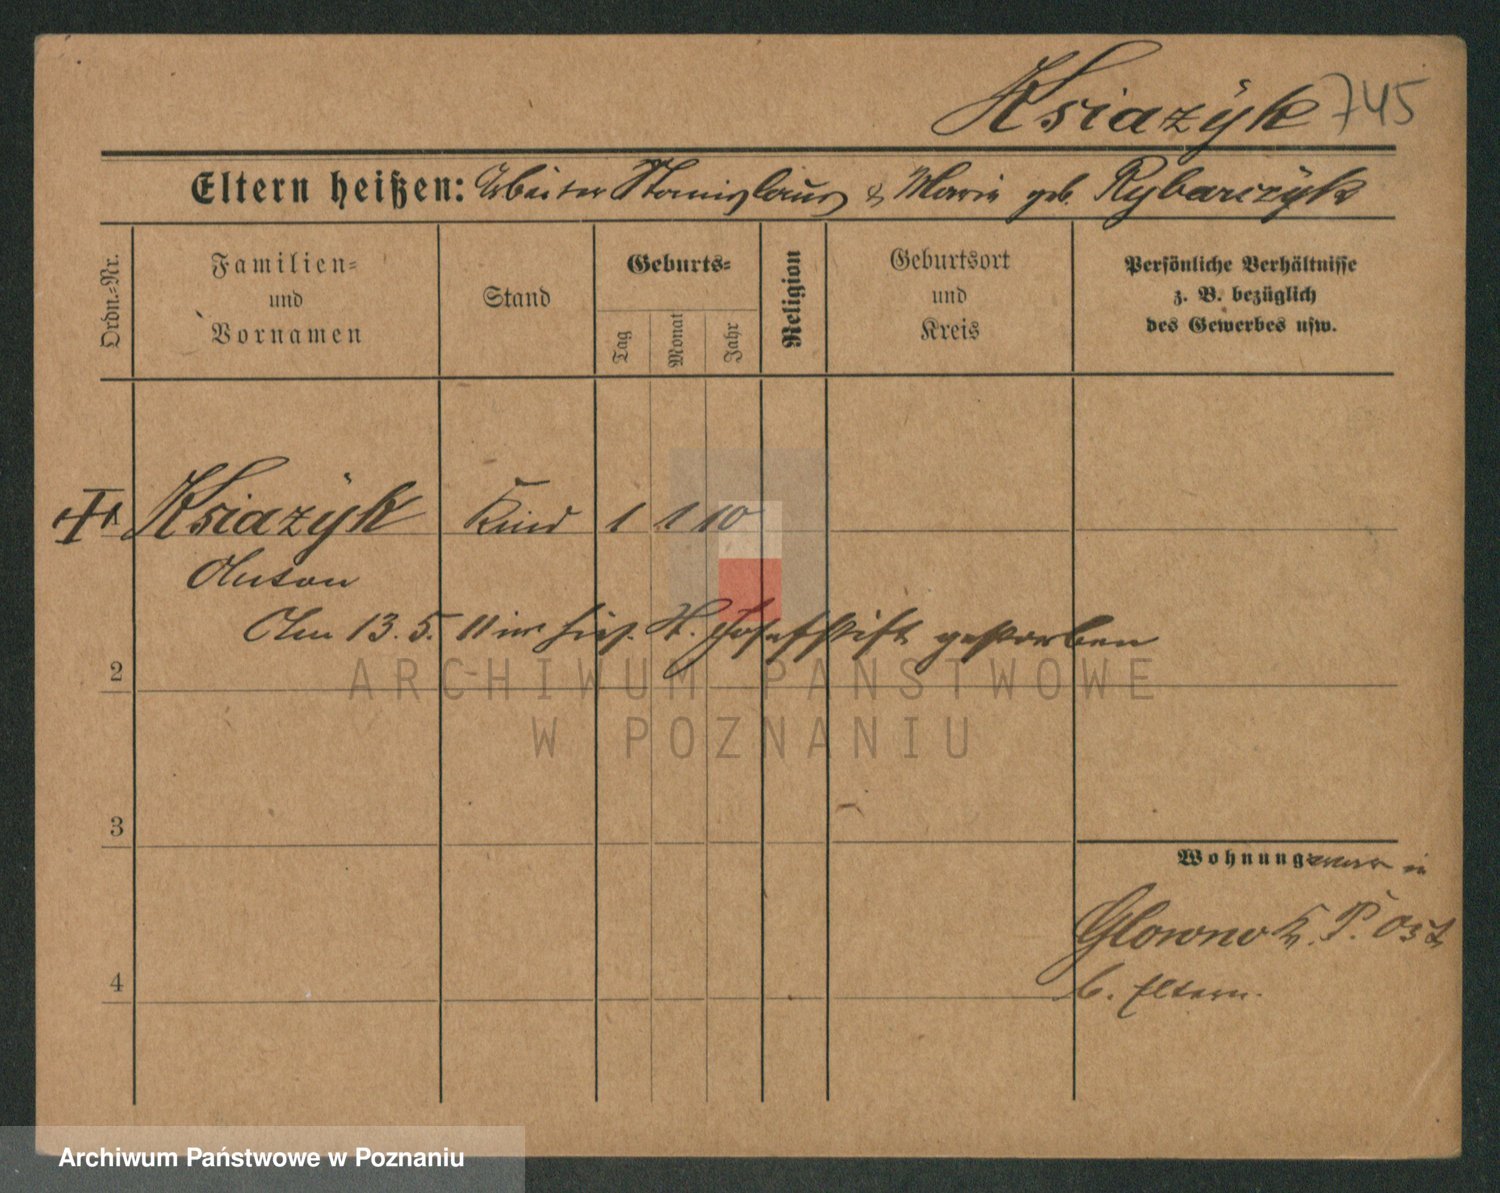 Ksiazÿk 745
Eltern heißen: Arbeiter Stanislaus & Marie geb. Rybarczÿk
Ordn.-Nr.
Familien-
und
Vornamen
Stand
Geburts-
Tag
Monat
Jahr
Religion
Geburtsort
und
Kreis
Persönliche Verhältnisse
z. B. bezüglich
des Gewerbes usw.
Ksiazÿk Kind 1 1 10
Anton
Am 13. 5. 11 im hies. St. Josefstift gestorben
2
ARCHIWUM PAŃSTWOWE
W POZNANIU
3
Wohnung war in
Glowno K. P. Ost
b. Eltern.
4
Archiwum Państwowe w Poznaniu